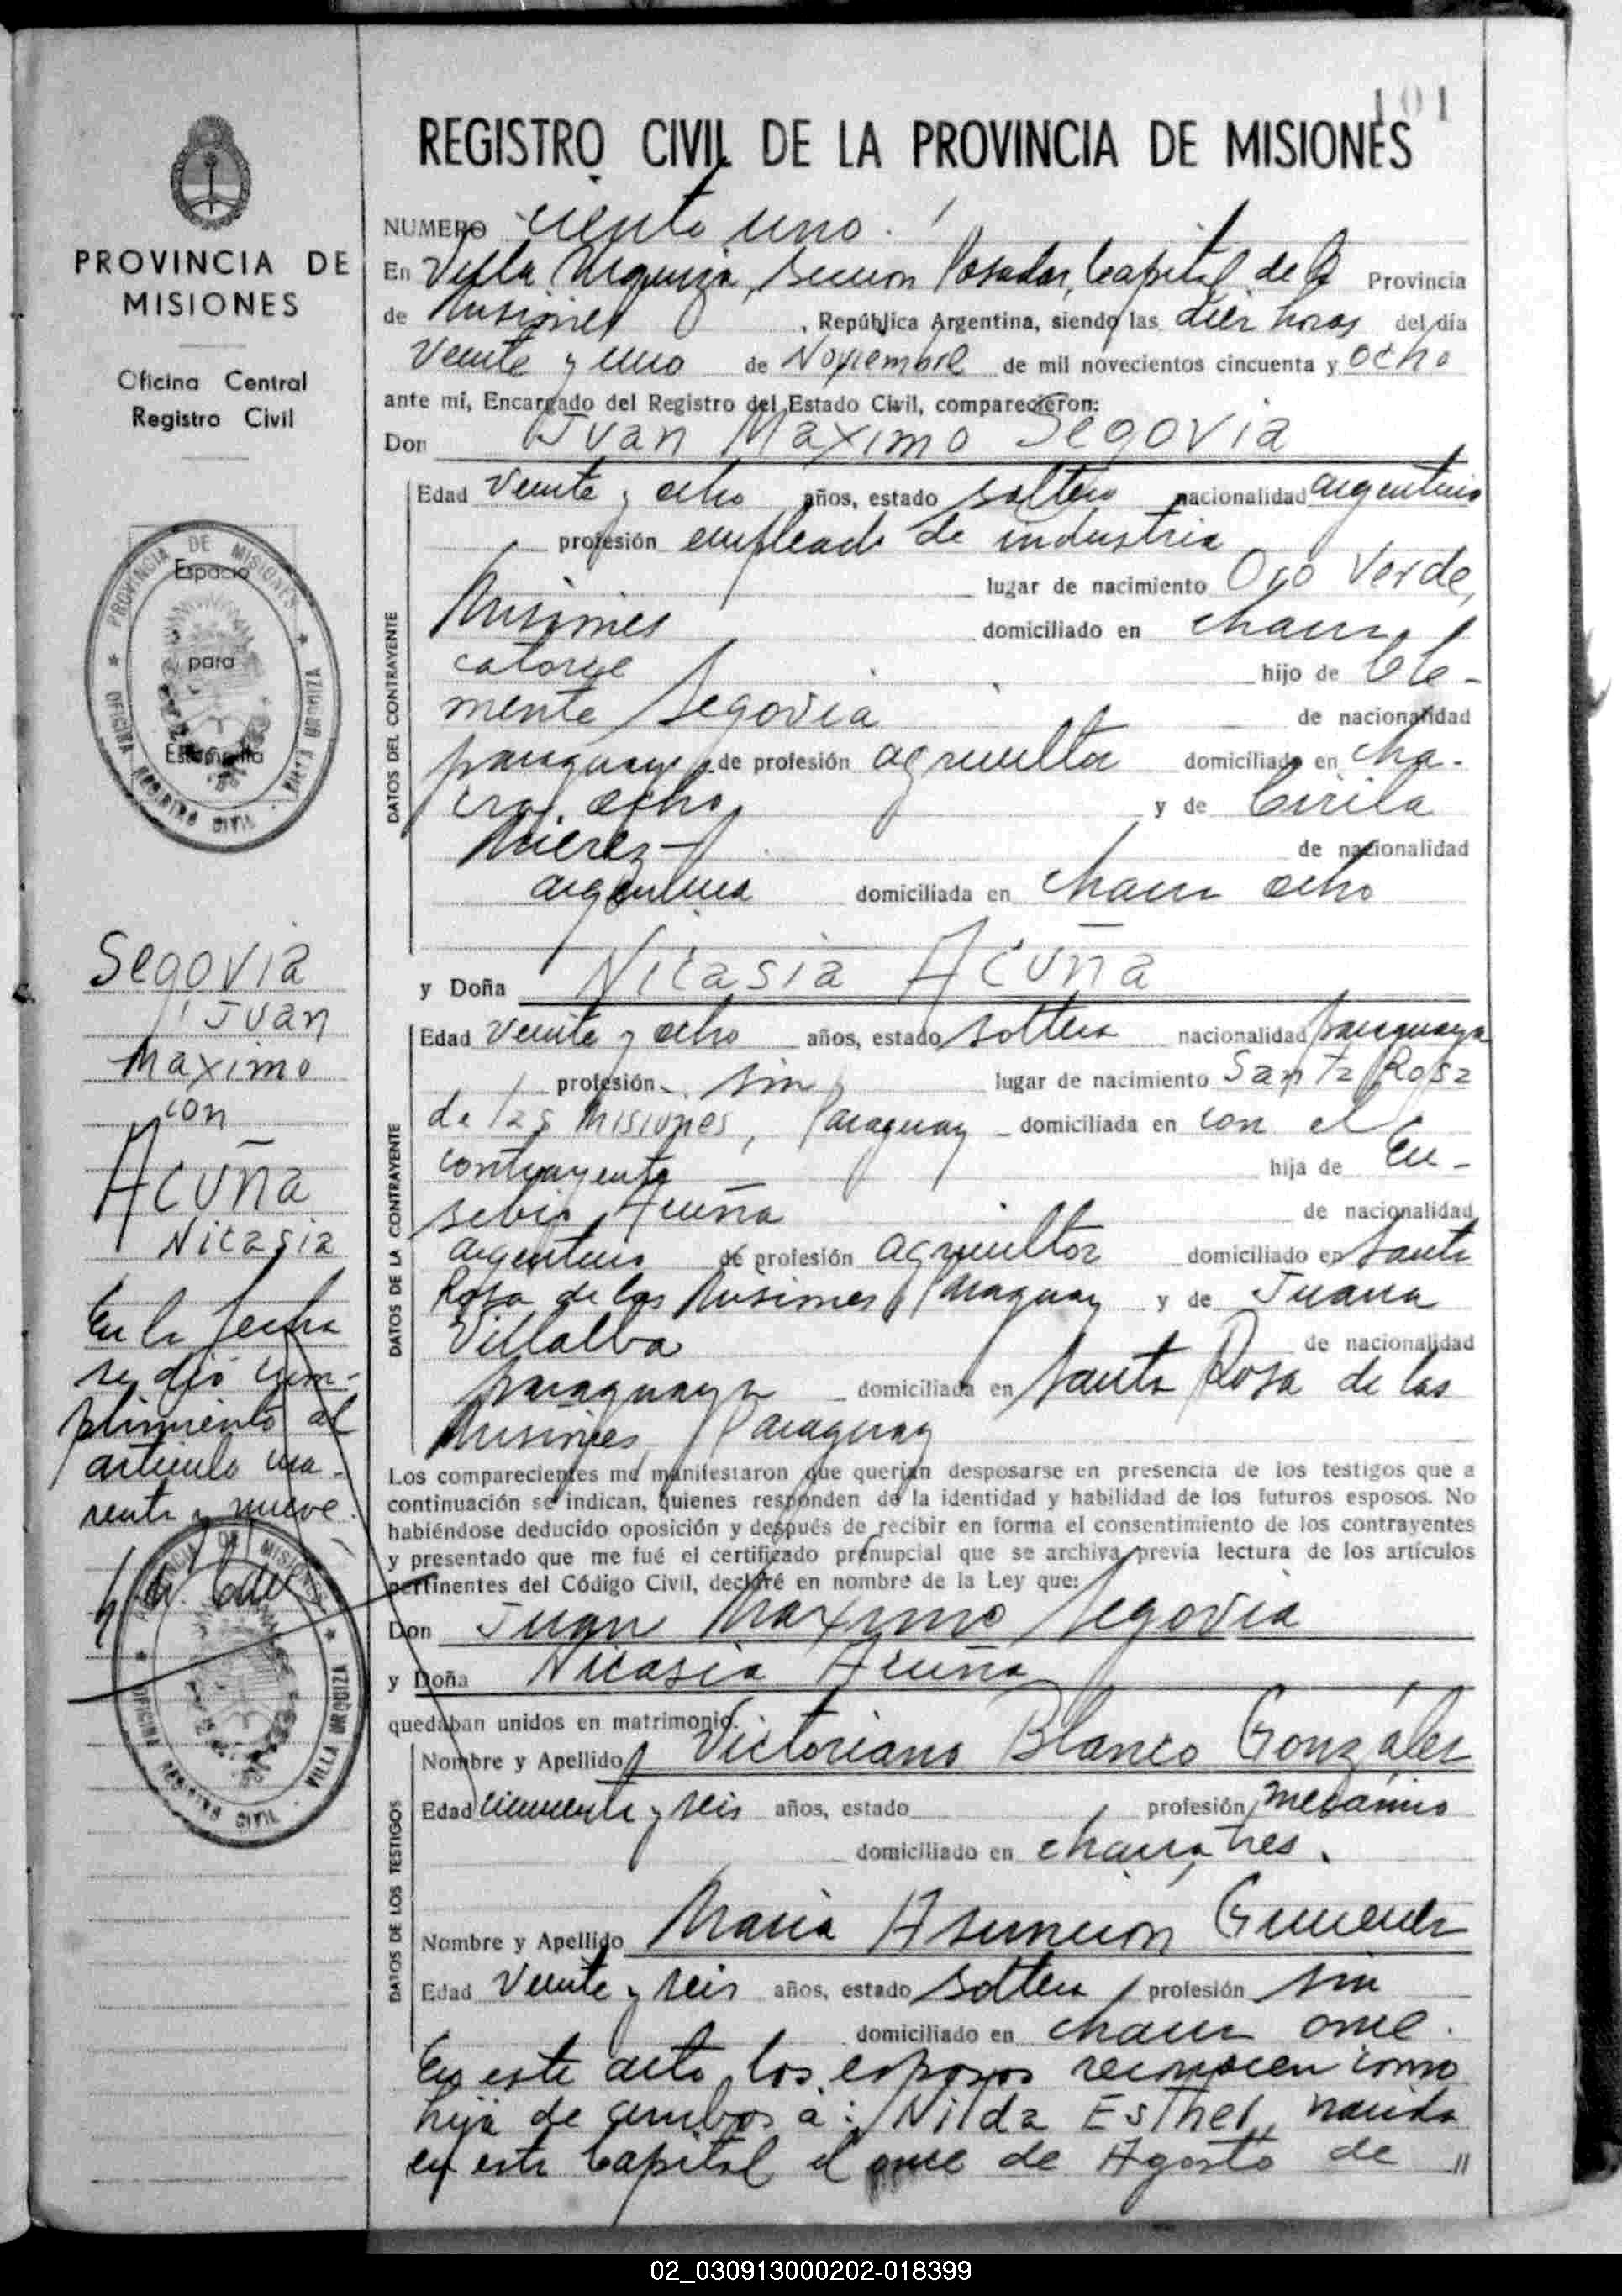 101
REGISTRO CIVIL DE LA PROVINCIA DE MISIONES
PROVINCIA DE
MISIONES
Oficina Central
Registro Civil
PROVINCIA DE MISIONES
OFICINA REGISTRO CIVIL
VILLA URQUIZA
Espacio
para
Estampilla
Segovia
Juan
Maximo
con
Acuña
Nicasia
En la fecha
se dió cum-
plimiento al
articulo cua-
renta y nueve.
PROVINCIA DE MISIONES
OFICINA REGISTRO CIVIL
VILLA URQUIZA
NUMERO ciento uno.
En Villa Urquiza, Seccion Posadas, Capital de la Provincia
de Misiones, República Argentina, siendo las diez horas del día
veinte y uno de Noviembre de mil novecientos cincuenta y ocho
ante mí, Encargado del Registro del Estado Civil, comparecieron:
Don Juan Maximo Segovia
DATOS DEL CONTRAYENTE
Edad veinte y ocho años, estado soltero nacionalidad argentino
profesión empleado de industria
lugar de nacimiento Oro Verde,
Misiones domiciliado en chacra
catorce hijo de Cle-
mente Segovia de nacionalidad
paraguayo de profesión agricultor domiciliado en cha-
cra ocho, y de Cirila
Mierez de nacionalidad
argentina domiciliada en chacra ocho
y Doña Nicasia Acuña
DATOS DE LA CONTRAYENTE
Edad veinte y ocho años, estado soltera nacionalidad paraguaya
profesión sin lugar de nacimiento Santa Rosa
de las Misiones, Paraguay domiciliada en con el
contrayente hija de Eu-
sebio Acuña de nacionalidad
argentino de profesión agricultor domiciliado en Santa
Rosa de las Misiones Paraguay y de Juana
Villalba de nacionalidad
paraguaya domiciliada en Santa Rosa de las
Misiones Paraguay
Los comparecientes me manifestaron que querían desposarse en presencia de los testigos que a
continuación se indican, quienes responden de la identidad y habilidad de los futuros esposos. No
habiéndose deducido oposición y después de recibir en forma el consentimiento de los contrayentes
y presentado que me fué el certificado prenupcial que se archiva previa lectura de los artículos
pertinentes del Código Civil, declaré en nombre de la Ley que:
Don Juan Maximo Segovia
y Doña Nicasia Acuña
quedaban unidos en matrimonio.
DATOS DE LOS TESTIGOS
Nombre y Apellido Victoriano Blanco González
Edad cincuenta y seis años, estado profesión mecánico
domiciliado en chacra tres.
Nombre y Apellido Maria Asuncion Gimenez
Edad veinte y seis años, estado soltera profesión sin
domiciliado en chacra once.
En este acto los esposos reconocen como
hija de ambos a: Nilda Esther, nacida
en esta Capital el once de Agosto de "
02_030913000202-018399